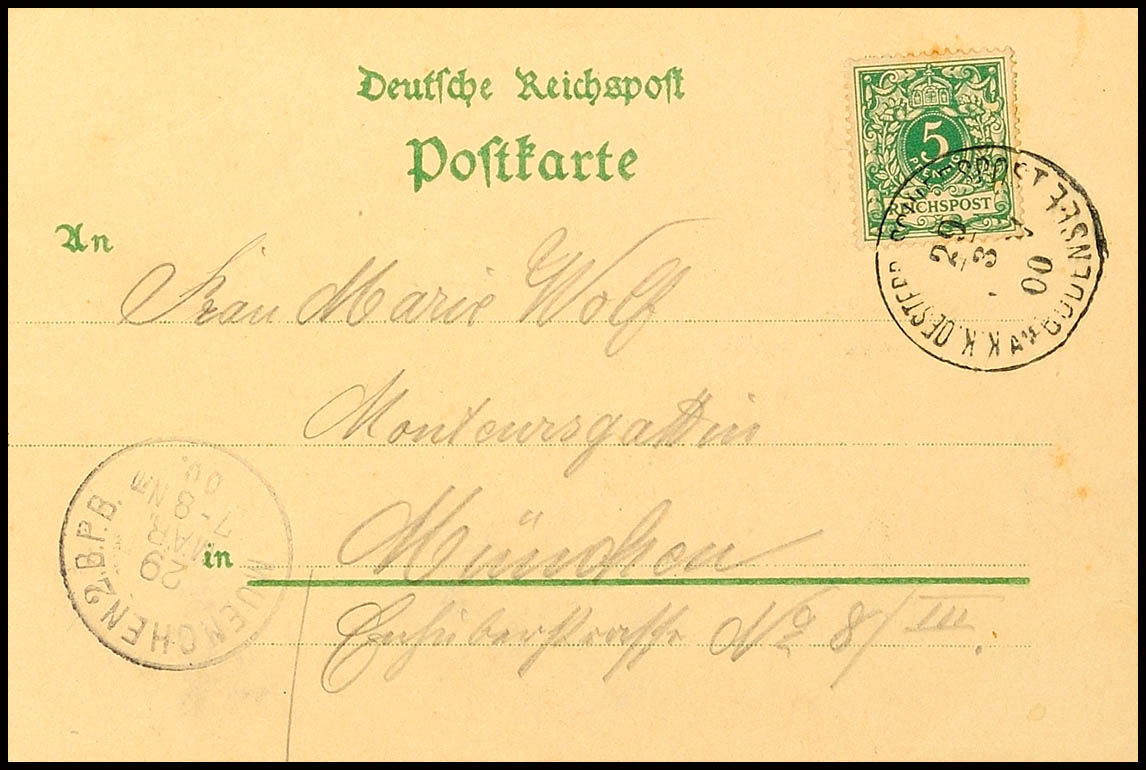 Deutsche Reichspost
Postkarte
5
REICHSPOST
K.K. OESTERR. POST
BODENSEE
29
3
00
An
Frau Marie Wolf
Monteursgattin
in München
Enhuberstrasse No 8/III.
MUENCHEN 2.B.P.B.
29
MAR
7-8 NM
00.